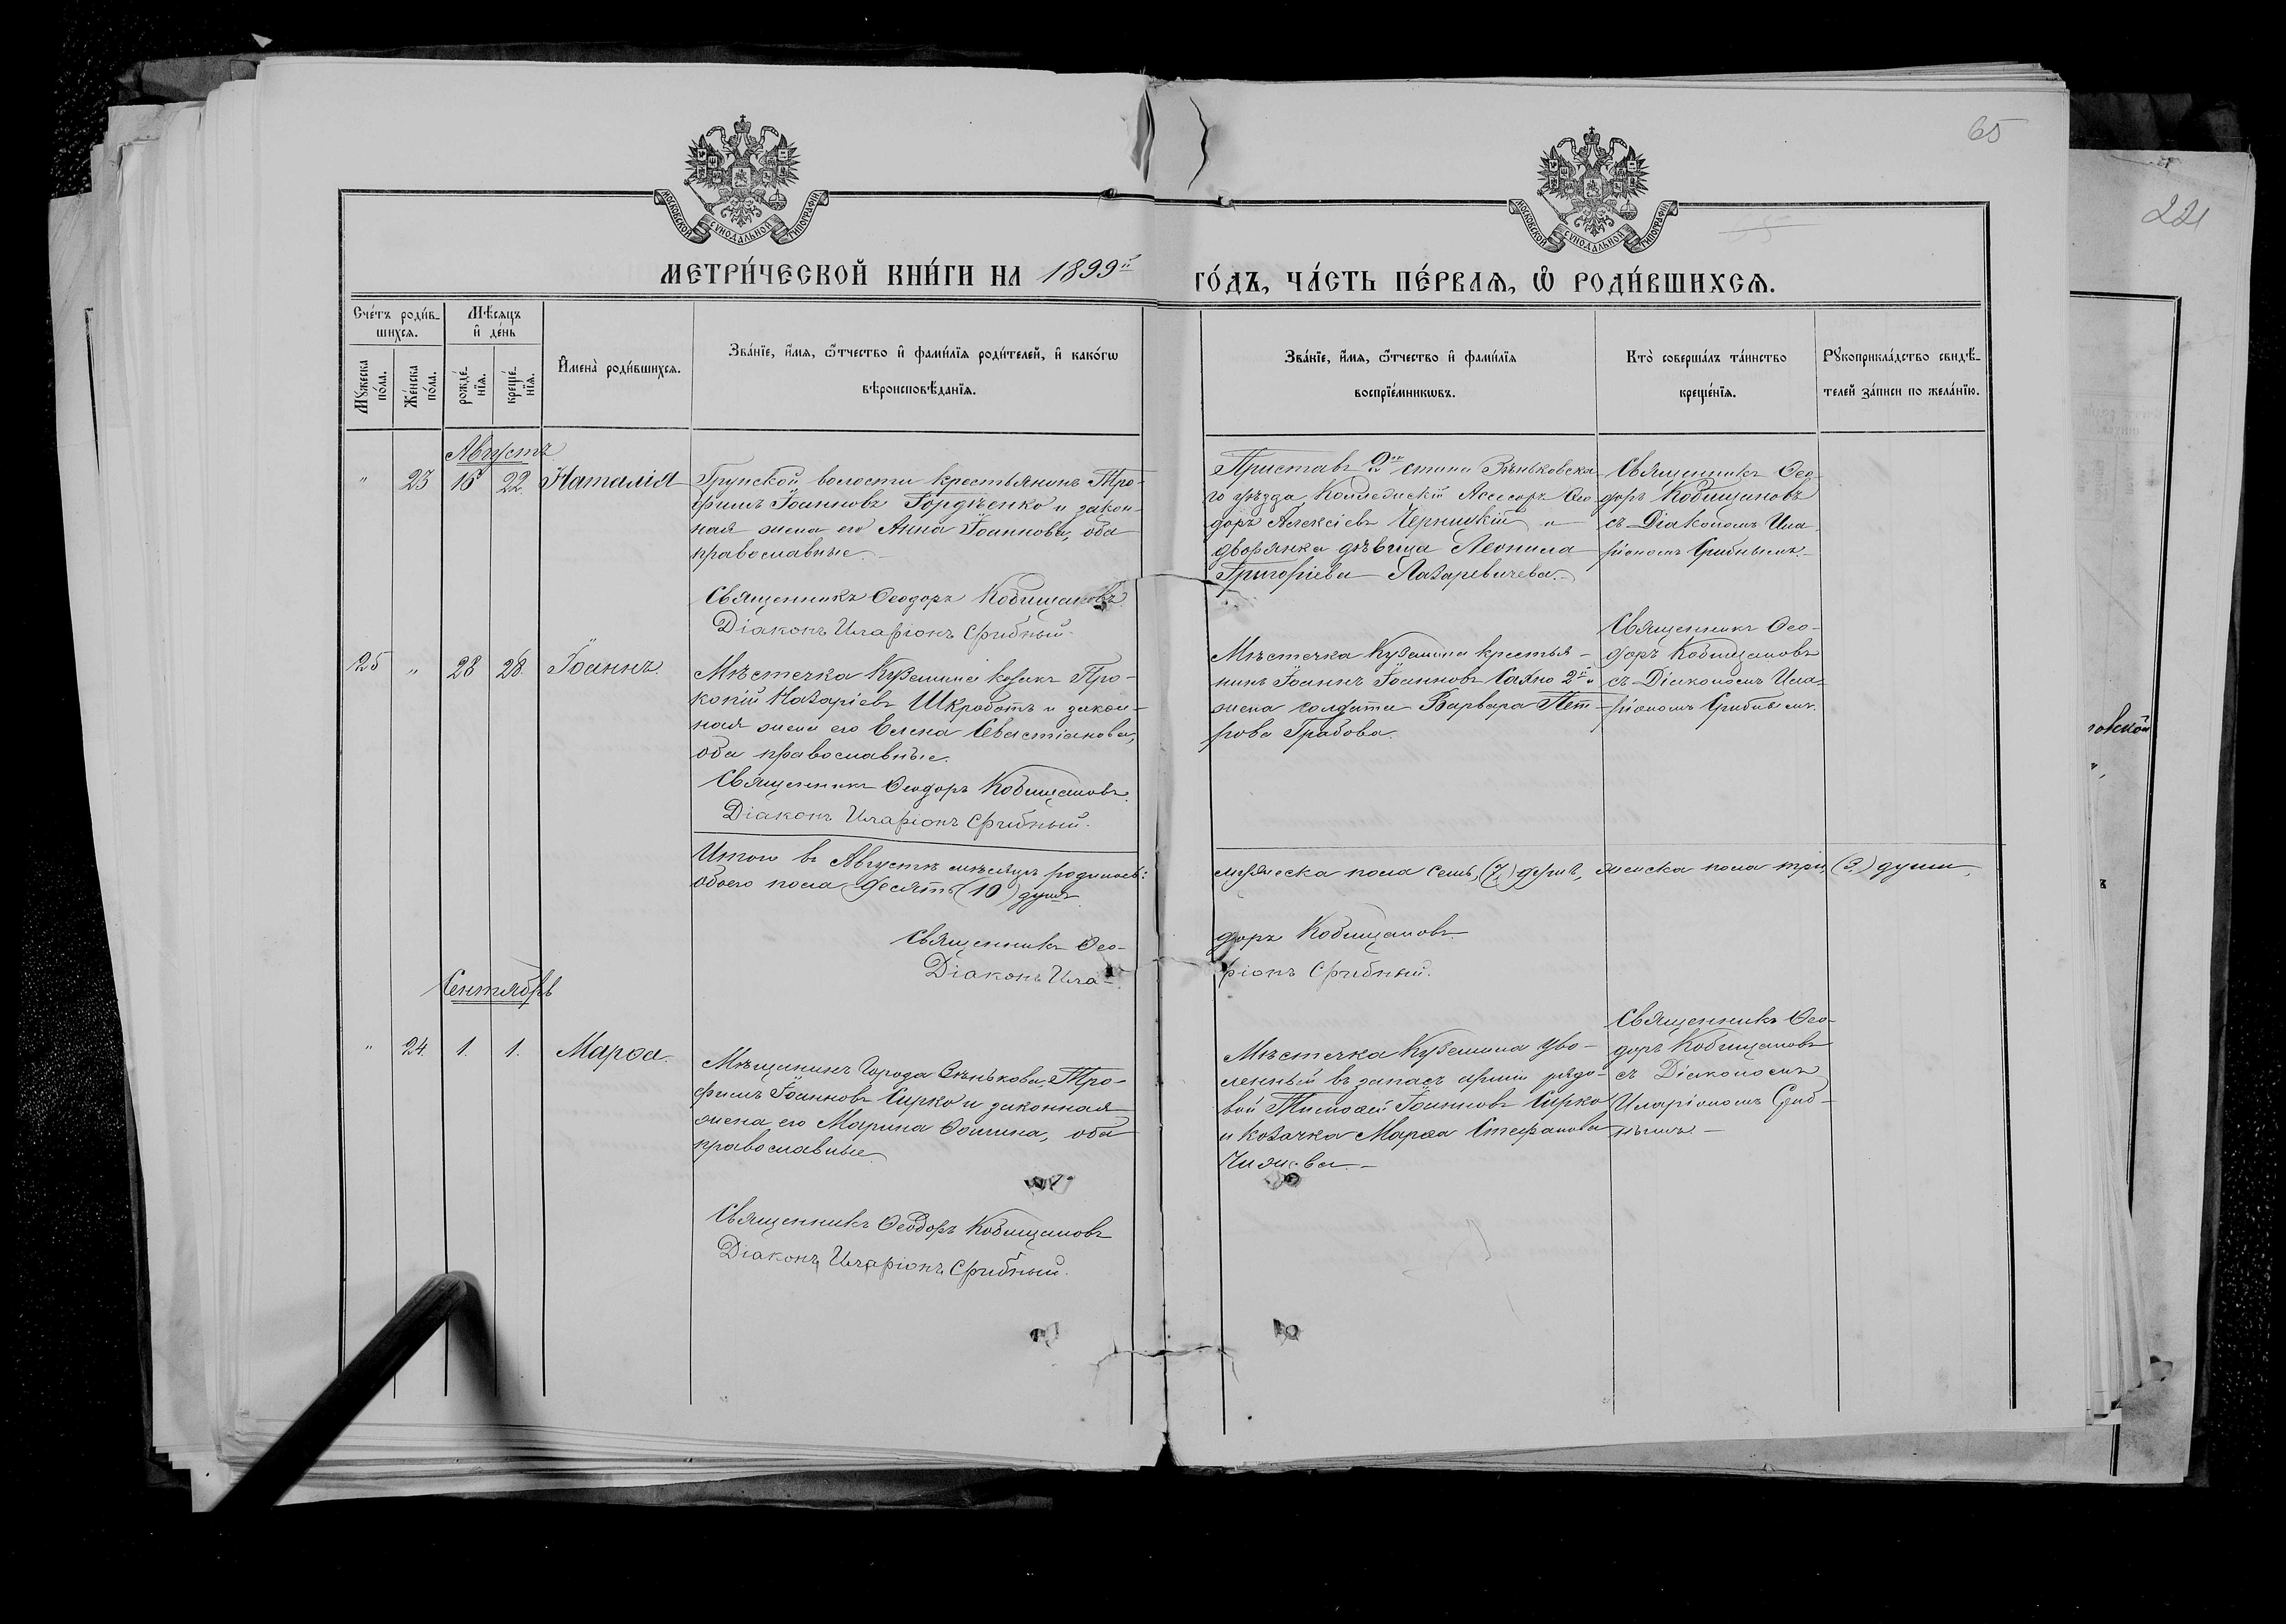 65
221
МОСКОВСКОЙ СѴНОДАЛЬНОЙ ТИПОГРАФІИ
МОСКОВСКОЙ СѴНОДАЛЬНОЙ ТИПОГРАФІИ
МЕТРИ́ЧЕСКОЙ КНИ́ГИ НА 1899й
ГО́ДЪ, ЧА́СТЬ ПЕ́РВАѦ, Ѡ҆ РОДИ́ВШИХСѦ.
Сче́тъ роди́в-
шихсѧ.
Мѣ́сѧцъ
и҆ де́нь
Мꙋ́жеска
по́ла.
Же́нска
по́ла.
рожде́-
нїѧ.
креще́-
нїѧ.
И҆мена̀ роди́вшихсѧ.
Зва́нїе, и҆́мѧ, ѻ҆́тчество и҆ фами́лїѧ роди́телей, и҆ како́гѡ
вѣроисповѣ́данїѧ.
Зва́нїе, и҆́мѧ, ѻ҆́тчество и҆ фами́лїѧ
воспрїе́мникѡвъ.
Кто̀ соверша́лъ та́инство
креще́нїѧ.
Рꙋкоприкла́дство свидѣ́-
телей за́писи по жела́нїю.
Августъ
" 23 15 22 Наталія
Грунской волости крестьянинъ Тро-
фимъ Іоанновъ Гордѣенко и закон-
ная жена его Анна Іоаннова, оба
православные.
Священникъ Ѳеодоръ Кобищановъ
Діаконъ Иларіонъ Срибный.
Приставъ 2го стана Зѣньковска-
го уѣзда Коллежскій Ассесоръ Ѳео-
доръ Алексіевъ Черницкій и
дворянка дѣвица Леонила
Григоріева Лазаревичева.
Священникъ Ѳео-
доръ Кобищановъ
съ Діакономъ Ила-
ріономъ Срибнымъ.
25 " 28 28. Іоаннъ.
Мѣстечка Куземина козакъ Про-
копій Назаріевъ Шкроботъ и закон-
ная жена его Елена Севастіанова,
оба православные.
Священникъ Ѳеодоръ Кобищановъ.
Діаконъ Иларіонъ Срибный.
Мѣстечка Куземина крестья-
нинъ Іоаннъ Іоанновъ Саяно 2й и
жена солдата Варвара Пет-
рова Грабова.
Священникъ Ѳео-
доръ Кобищановъ
съ Діакономъ Ила-
ріономъ Срибнымъ.
Итого въ Августѣ мѣсяцѣ родилось:
мужеска пола семь, (7) душъ, женска пола три, (3) души,
обоего пола десять (10) душъ.
Священникъ Ѳео-
доръ Кобищановъ.
Діаконъ Ила-
ріонъ Срибный.
Сентябрь
" 24. 1. 1. Марѳа.
Мѣщанинъ Города Зѣнькова, Тро-
фимъ Іоанновъ Сирко и законная
жена его Марина Ѳомина, оба
православные
Священникъ Ѳеодоръ Кобищановъ
Діаконъ Иларіонъ Срибный.
Мѣстечка Куземина уво-
ленный въ запасъ арміи рядо-
вой Тимоѳей Іоанновъ Сирко
и козачка Марѳа Стефанова
Священникъ Ѳео-
доръ Кобищановъ
съ Діакономъ
Иларіономъ Сриб-
нымъ.